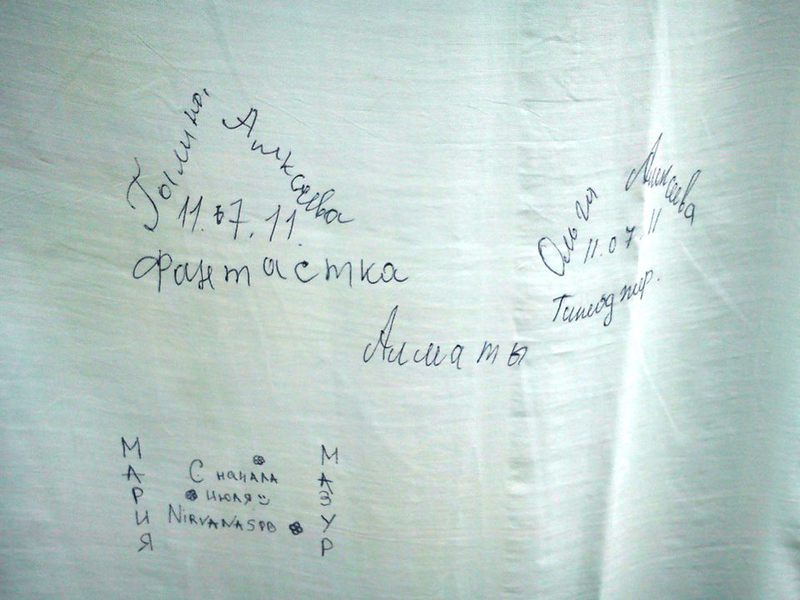 Галина Алексеева
11.07.11.
Фантастка
Ольга Алексеева
11.07.11
Алматы
МАРИЯ
С начала
июля
NIRVANASPB
МАЗУР